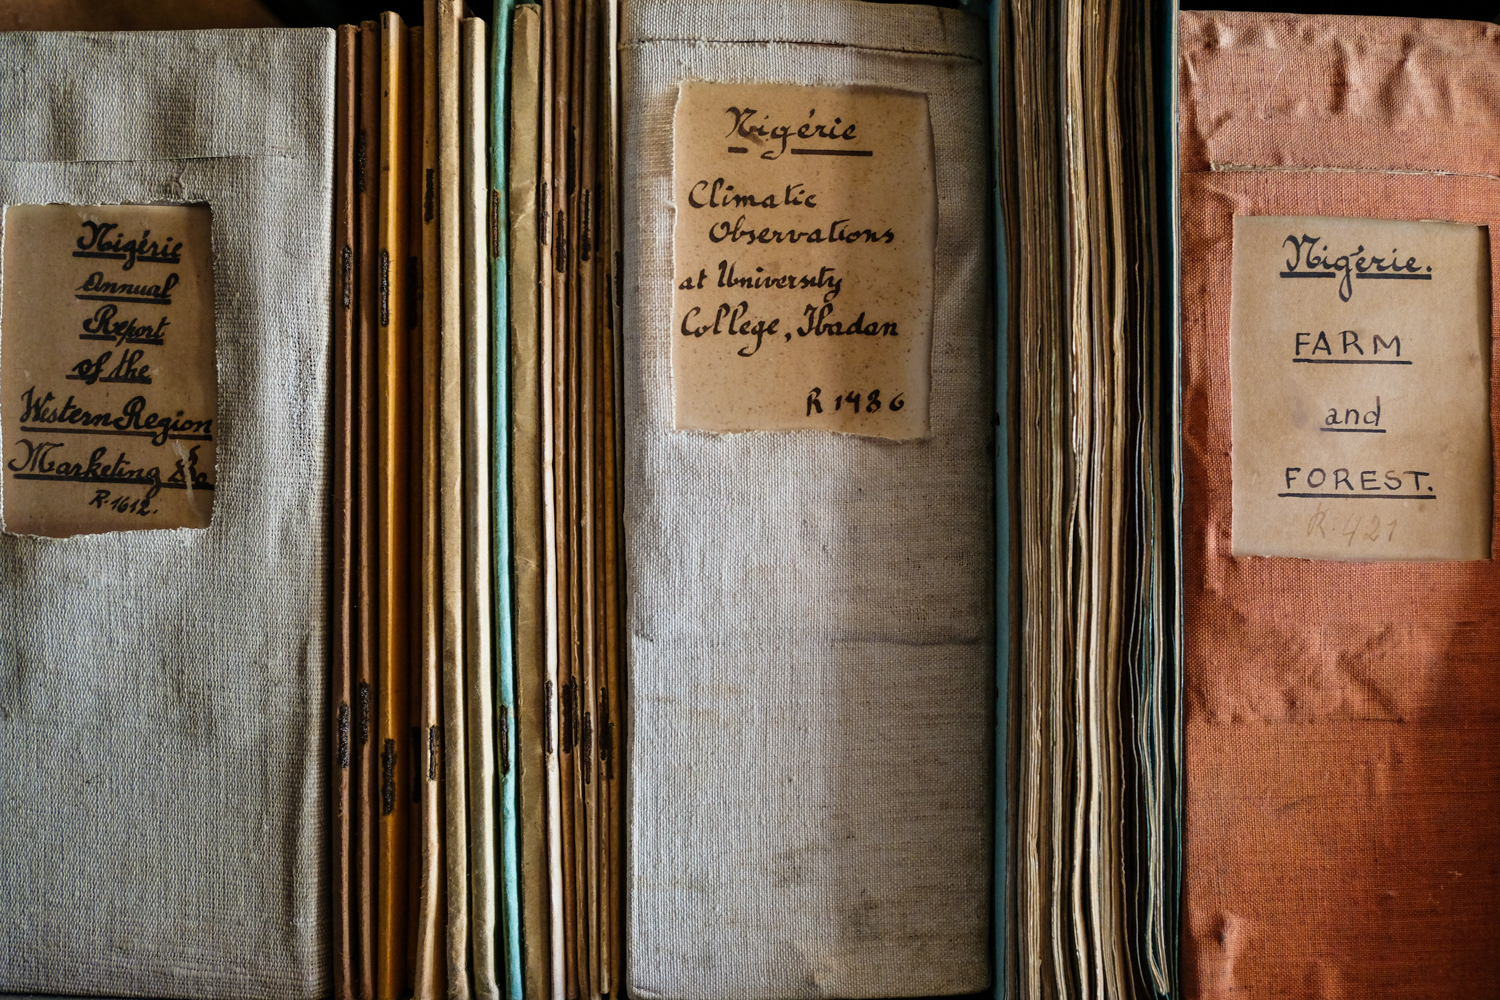 Nigérie
Annual
Report
of the
Western Region
Marketing
R.1612.
Nigérie
Climatic
Observations
at University
College, Ibadan
R 1486
Nigérie.
FARM
and
FOREST.
R.421